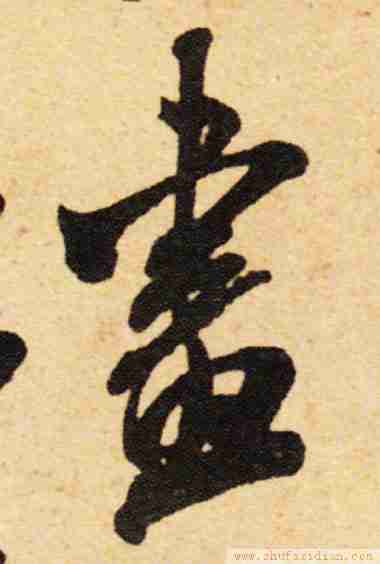 盡
www.shufazidian.com